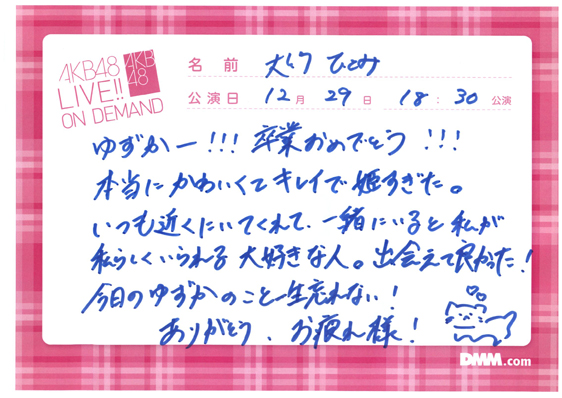 AKB48
LIVE!!
ON DEMAND
AKB
48
名前 大もり ひとみ
公演日 12月29日 18:30公演
ゆずかー!!! 卒業おめでとう!!!
本当にかわいくてキレイで姫すぎた。
いつも近くにいてくれて、一緒にいると私が
私らしくいられる大好きな人。出会えて良かった!
今日のゆずかのこと一生忘れない!
ありがとう、お疲れ様!
DMM.com